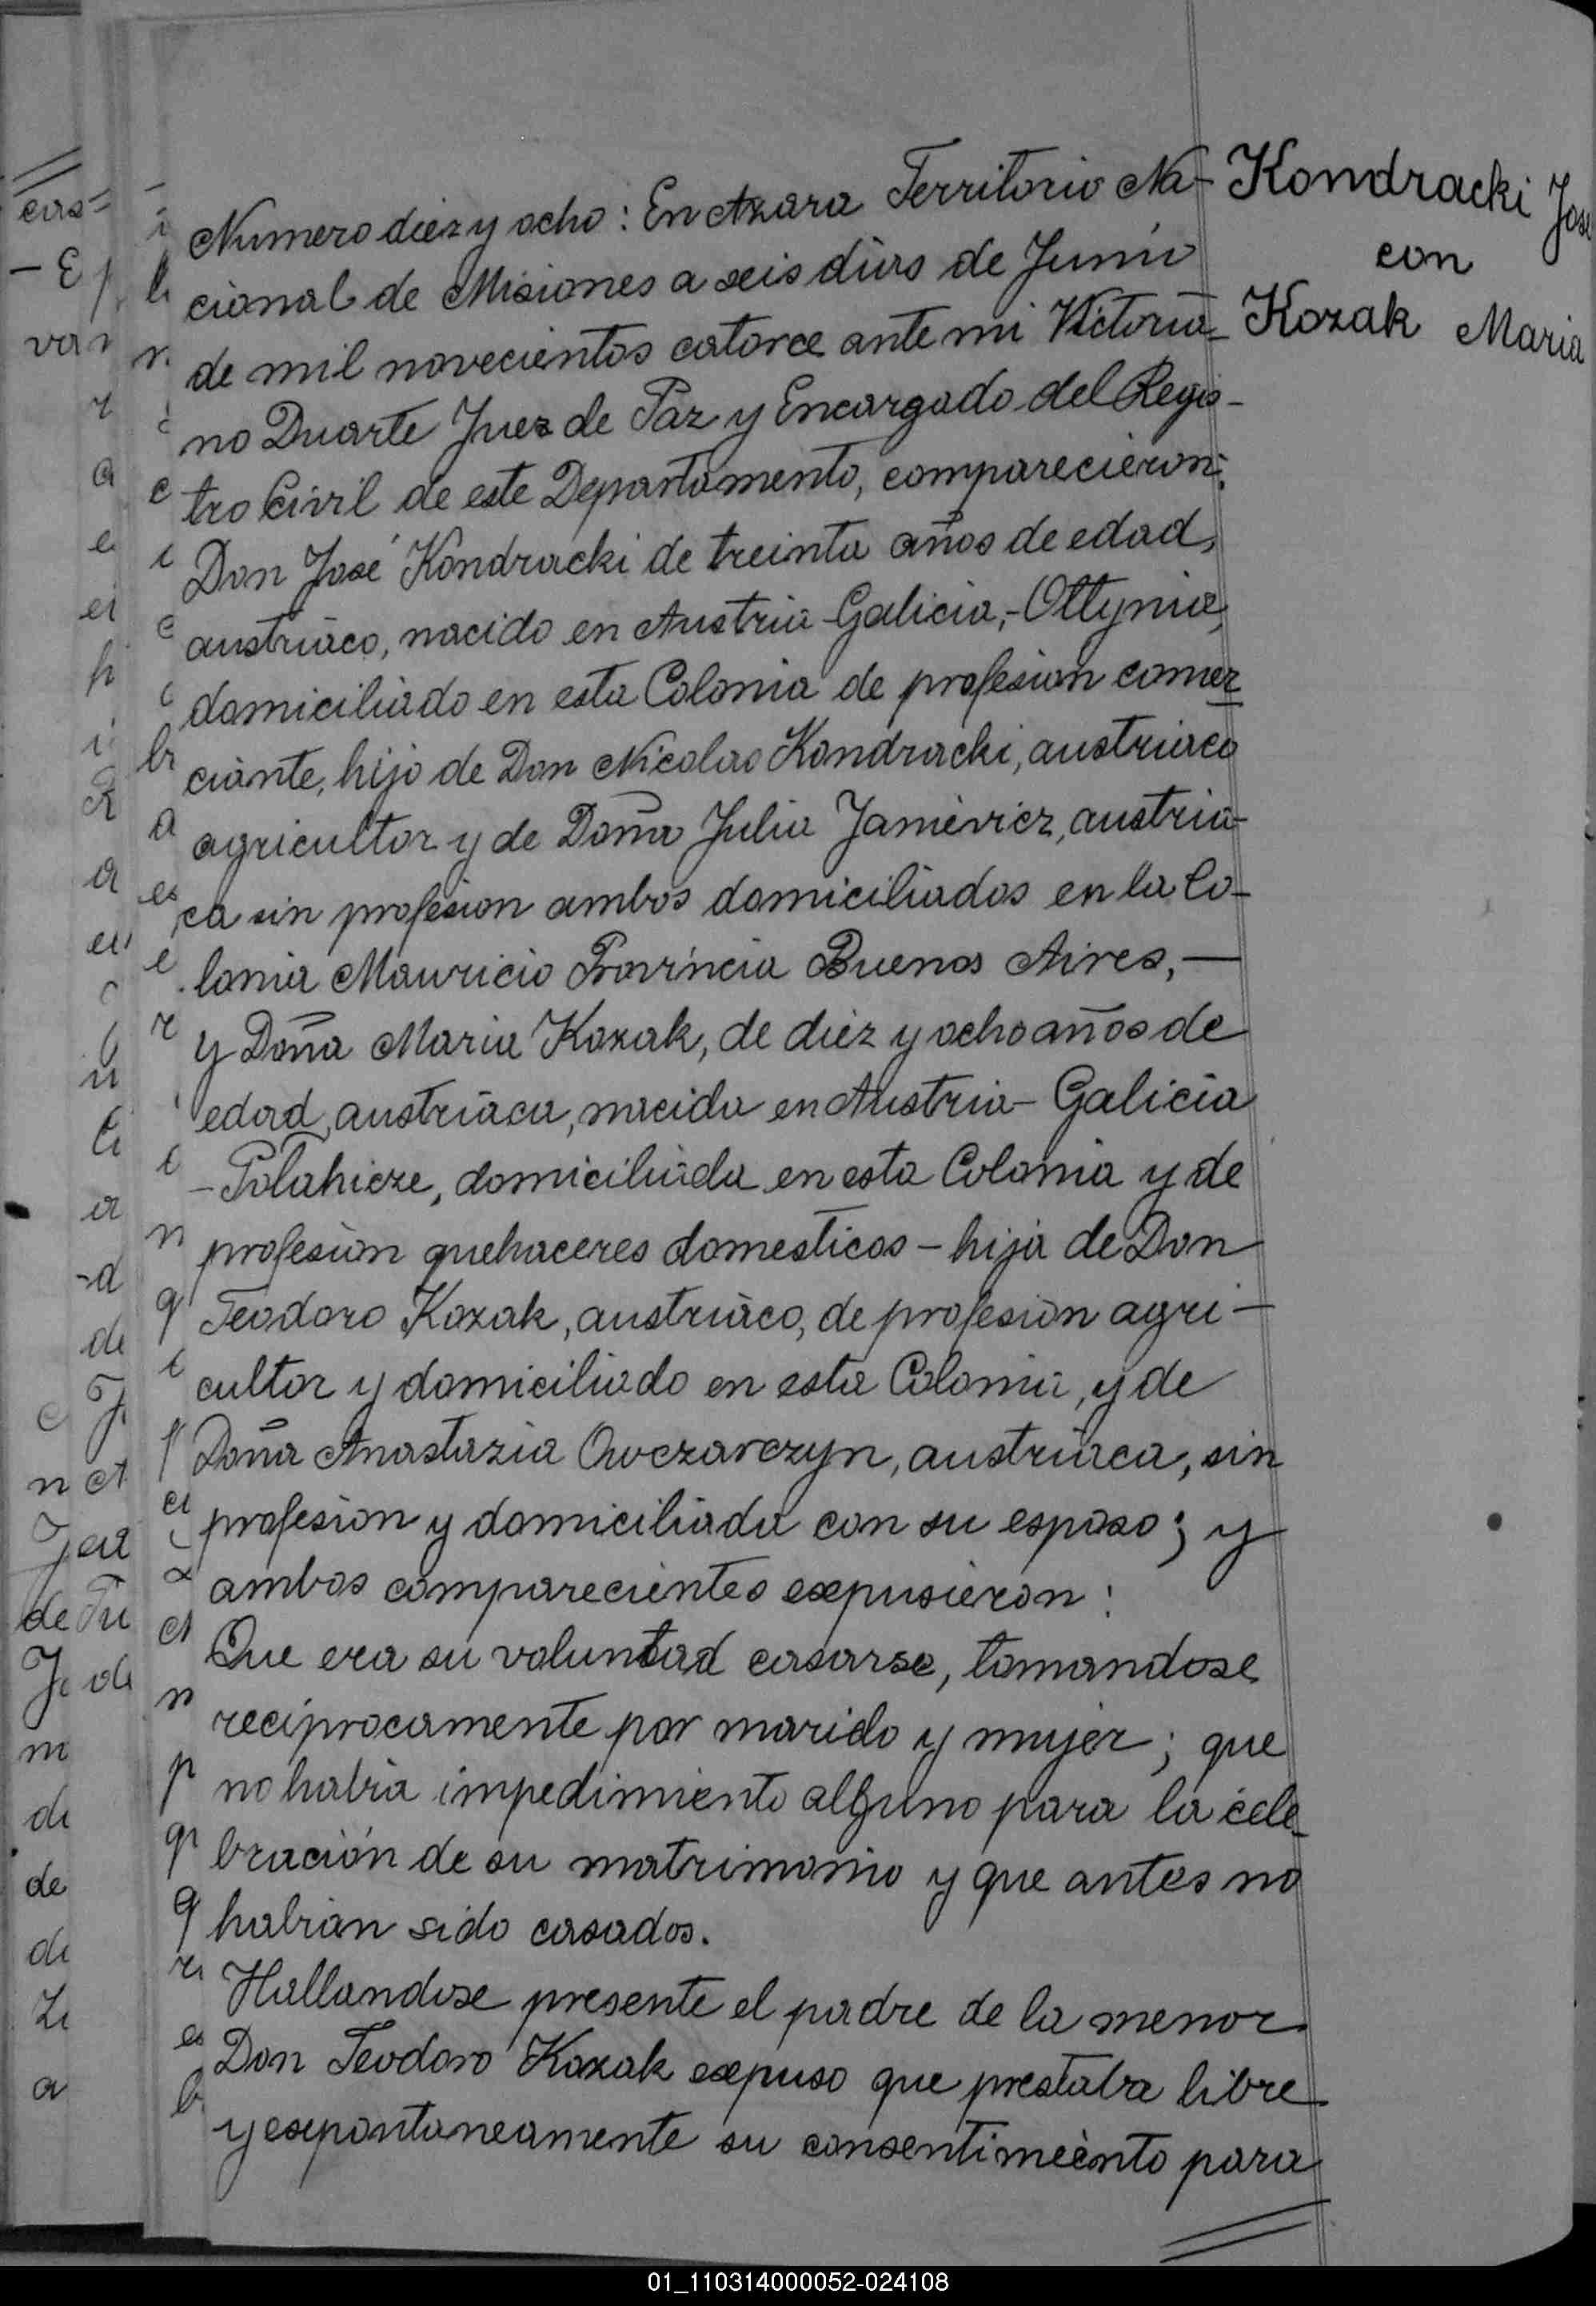 Kondracki José
con
Kozak Maria
Numero diez y ocho: En Azara Territorio Na-
cional de Misiones a seis dias de Junio
de mil novecientos catorce ante mi Victoria-
no Duarte Juez de Paz y Encargado del Regis-
tro Civil de este Departamento, comparecieron:
Don José Kondracki de treinta años de edad,
austriaco, nacido en Austria-Galicia,-Ottynia,
domiciliado en esta Colonia de profesion comer
ciante, hijo de Don Nicolas Kondracki, austriaco
agricultor y de Doña Julia Janievicz, austria-
ca sin profesion ambos domiciliados en la Co-
lonia Mauricio Provincia Buenos Aires,—
y Doña Maria Kozak, de diez y ocho años de
edad, austriaca, nacida en Austria-Galicia
-Polahicze, domiciliada en esta Colonia y de
profesion quehaceres domesticos - hija de Don
Teodoro Kozak, austriaco, de profesion agri-
cultor y domiciliado en esta Colonia, y de
Doña Anastazia Owczarczyn, austriaca, sin
profesion y domiciliada con su esposo; y
ambos comparecientes expusieron:
Que era su voluntad casarse, tomandose
reciprocamente por marido y mujer; que
no habia impedimiento alguno para la cele-
bración de su matrimonio y que antes no
habian sido casados.
Hallandose presente el padre de la menor
Don Teodoro Kozak expuso que prestaba libre
y expontaneamente su consentimeento para
01_110314000052-024108